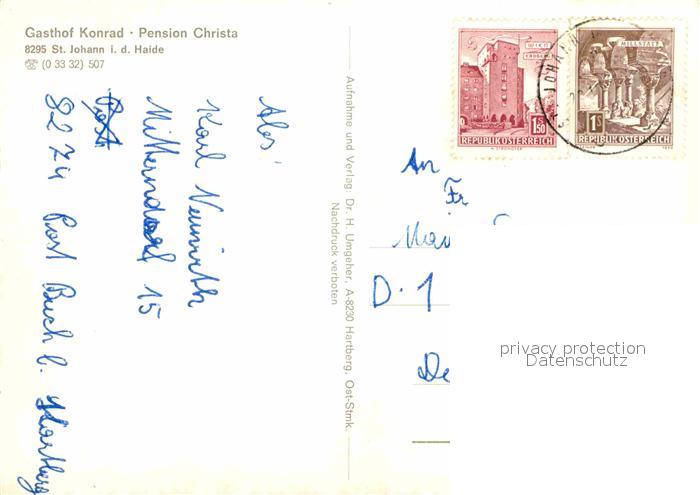 Gasthof Konrad · Pension Christa
8295 St. Johann i. d. Haide
☏ (0 33 32) 507
Abs.
Karl
Mitterndorf 15
Post
8274 Post Buch b. Hartberg
Aufnahme und Verlag: Dr. H. Umgeher, A-8230 Hartberg, Ost-Stmk.
Nachdruck verboten
WIEN
ERDBERG
1.50
REPUBLIK ÖSTERREICH
MILLSTATT
1S
REPUBLIK ÖSTERREICH
JOHANN
An
Fr
D-1
De
privacy protection
Datenschutz